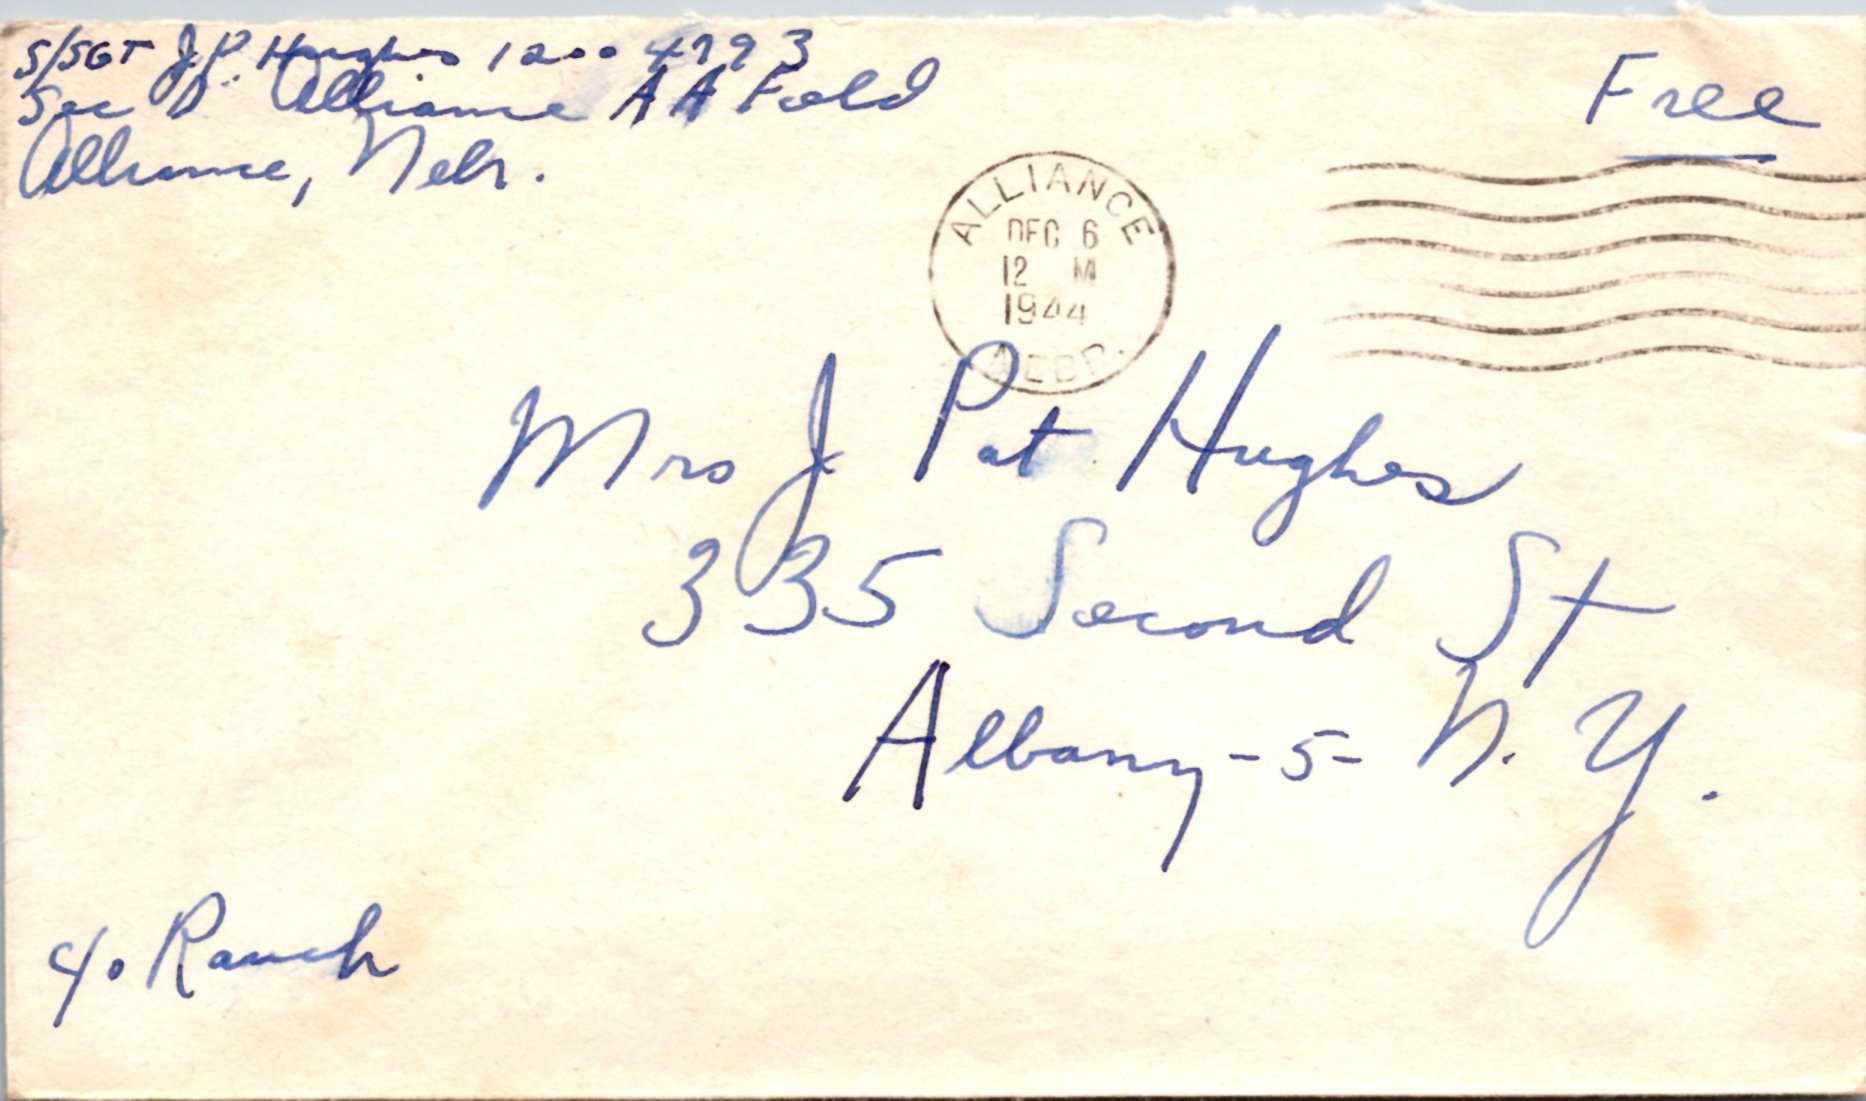 S/SGT J.P. Hughes 12004793
Sec D Alliance AA Field
Alliance, Nebr.
Free
ALLIANCE
DEC 6
12 M
1944
NEBR.
Mrs J Pat Hughes
335 Second St
Albany -5- N. Y.
c/o Rauch